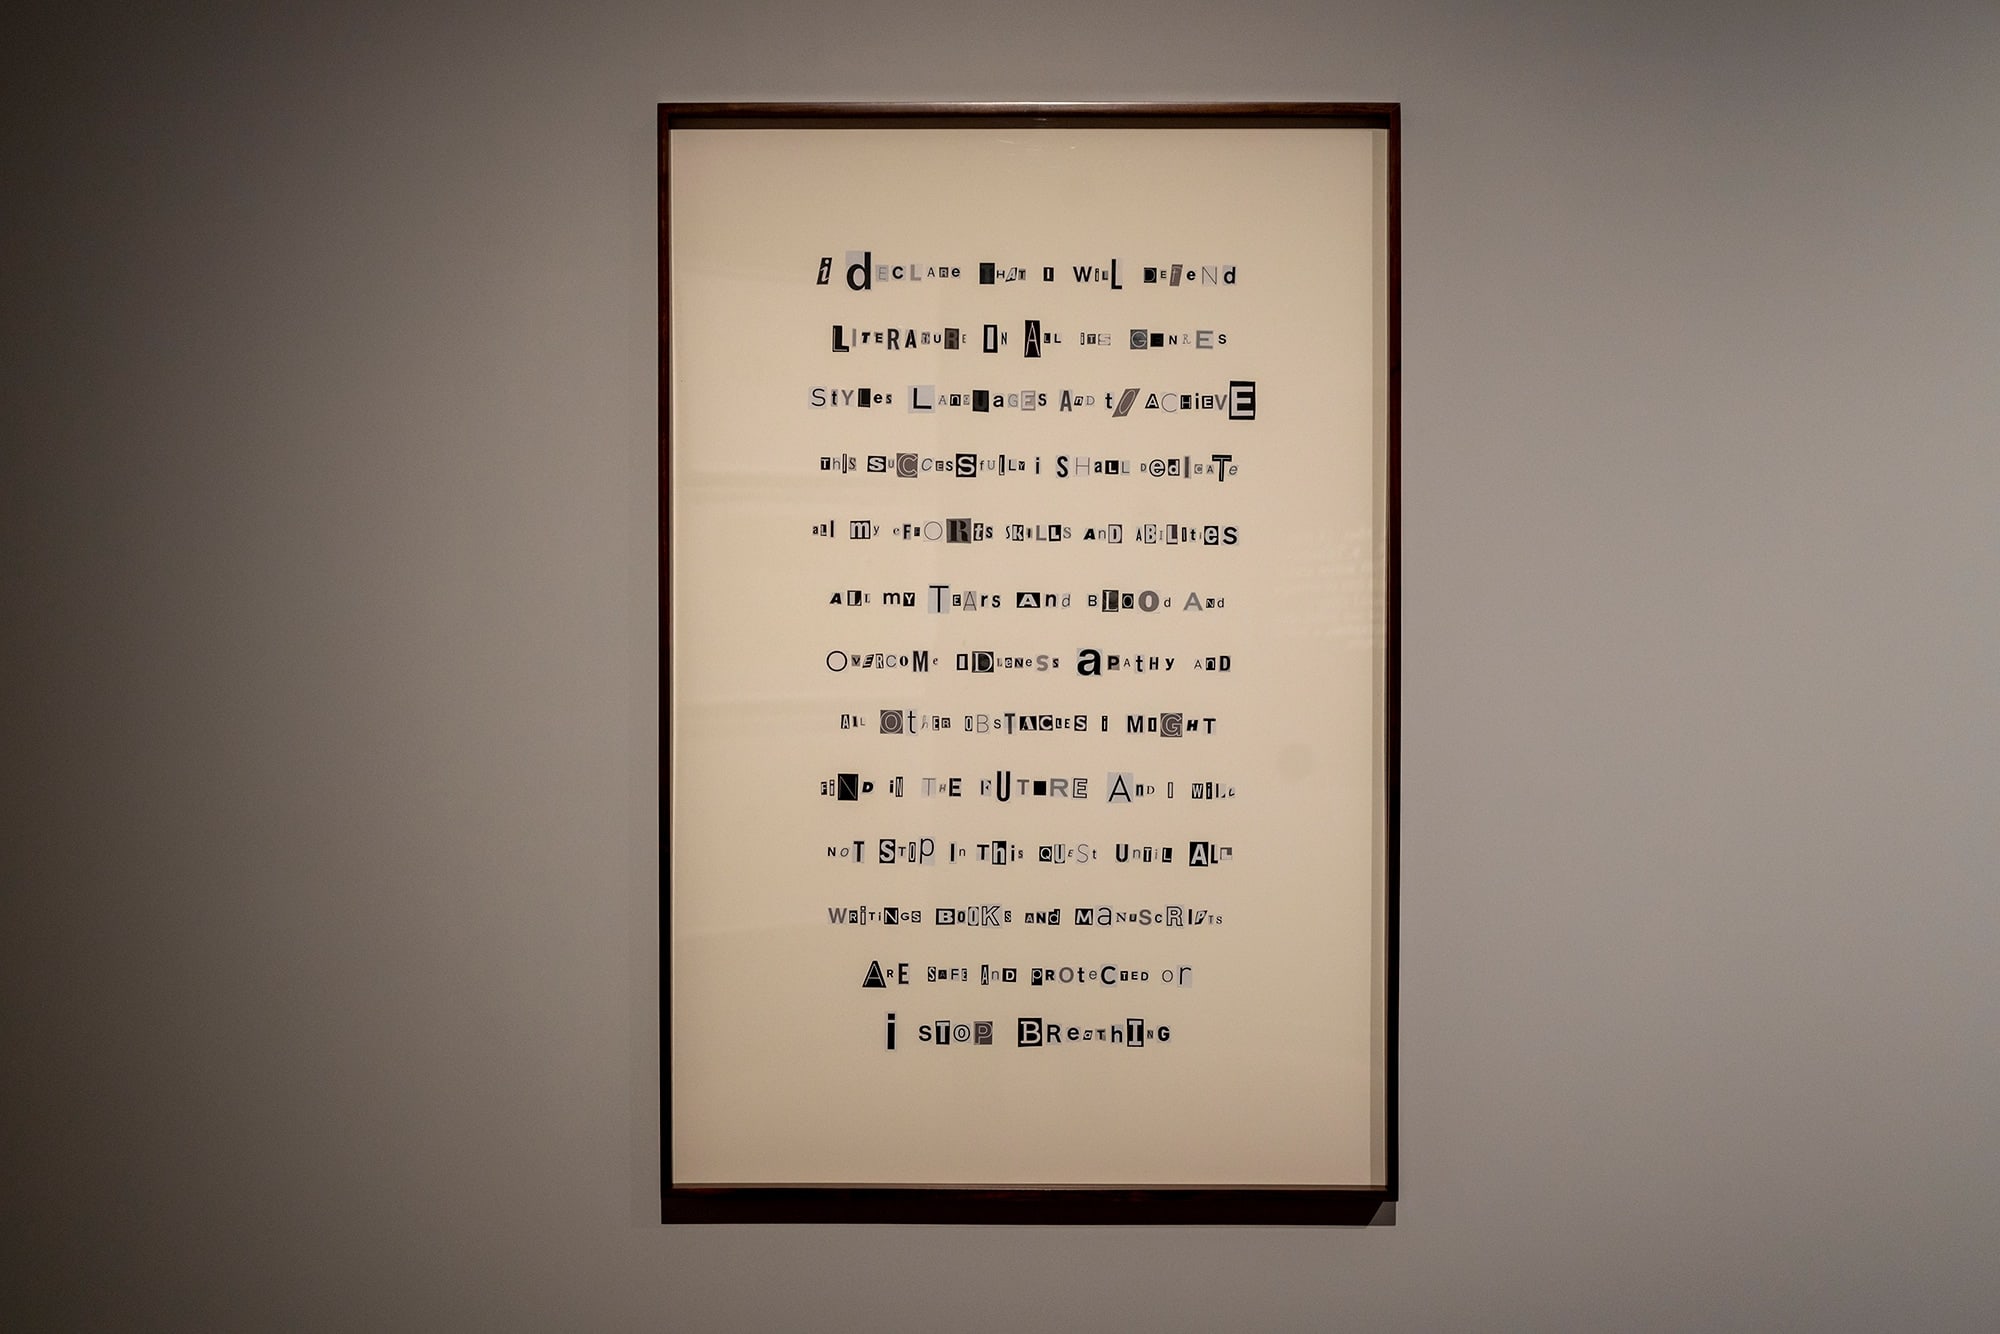 i dECLARe THAT I WiLL DEfeNd
LITERATURE IN ALL iTS GENRES
StYLes LANGUAGES And tO ACHiEVE
This SuCCESSfULLY i SHaLL DedIcATe
all my eFFORts SKiLLS AnD ABILItiES
ALL mY TEArs ANd BLOOd ANd
OVERCOMe IDLENeSs aPAtHy AnD
ALL OtHER OBSTACLES i MIGHT
FiND iN THE FUTURE AnD I WiLL
NOT STOp In This QUESt UnTiL ALL
WRiTiNGS BOOKS AND MaNUScRIPTS
ARE SAFE AnD PROteCTED or
i STOP BReaThING